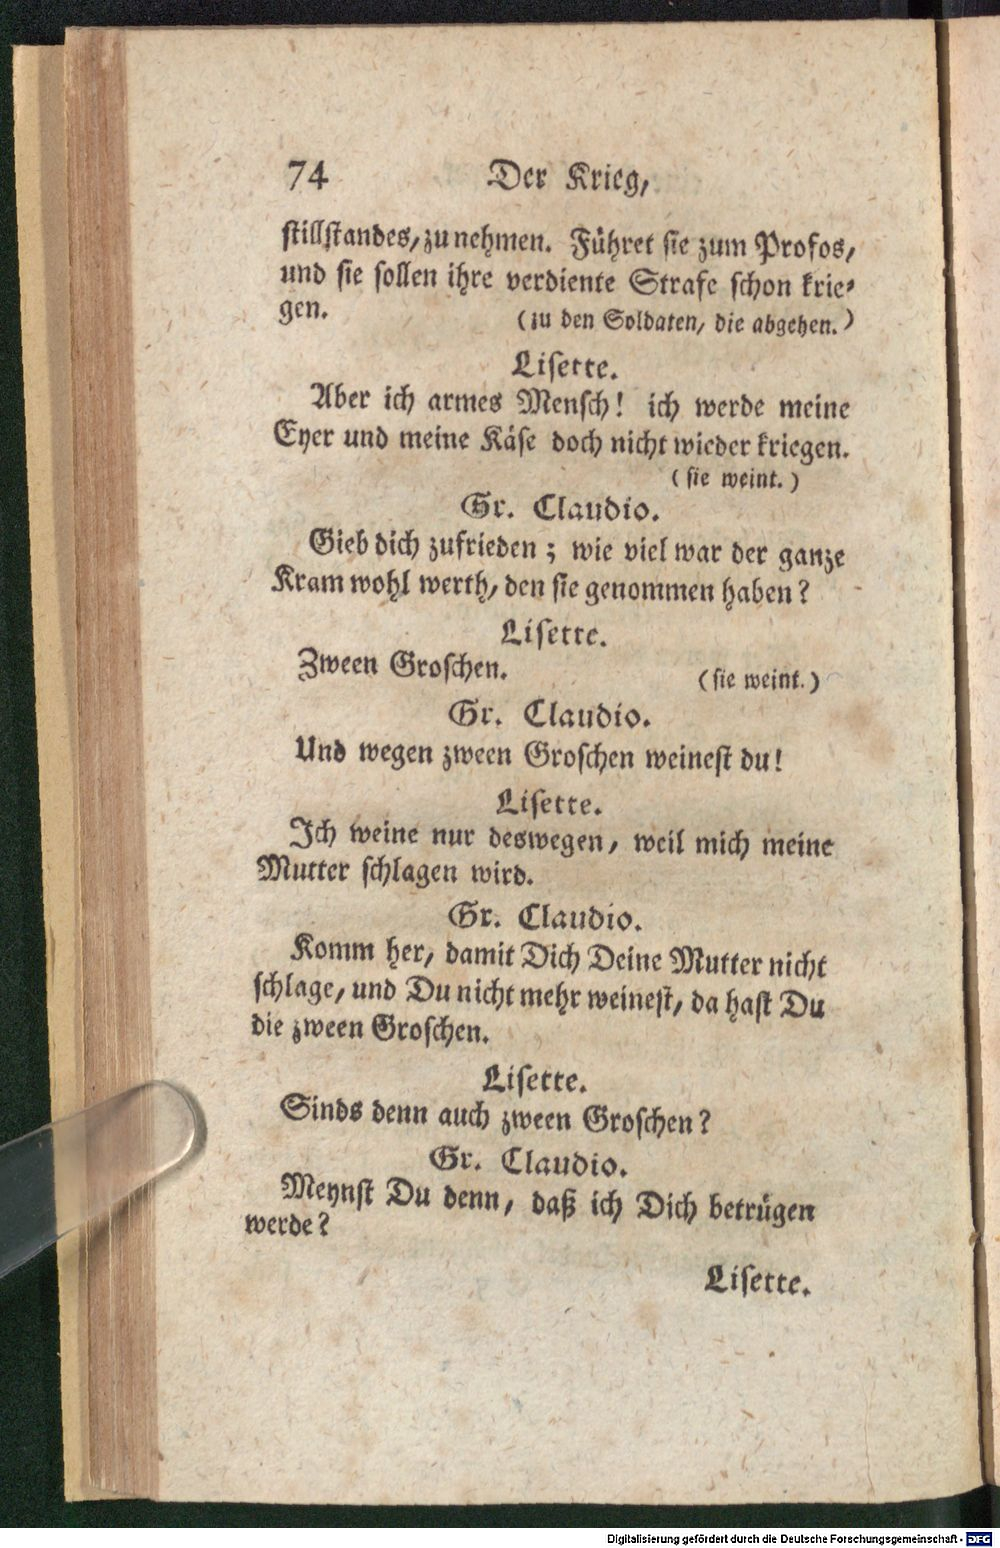 74 Der Krieg,
stillstandes, zu nehmen. Führet sie zum Profos,
und sie sollen ihre verdiente Strafe schon krie-
gen. (zu den Soldaten, die abgehen.)
Lisette.
Aber ich armes Mensch! ich werde meine
Eyer und meine Käse doch nicht wieder kriegen.
(sie weint.)
Gr. Claudio.
Gieb dich zufrieden; wie viel war der ganze
Kram wohl werth, den sie genommen haben?
Lisette.
Zween Groschen. (sie weint.)
Gr. Claudio.
Und wegen zween Groschen weinest du!
Lisette.
Ich weine nur deswegen, weil mich meine
Mutter schlagen wird.
Gr. Claudio.
Komm her, damit Dich Deine Mutter nicht
schlage, und Du nicht mehr weinest, da hast Du
die zween Groschen.
Lisette.
Sinds denn auch zween Groschen?
Gr. Claudio.
Meynst Du denn, daß ich Dich betrügen
werde?
Lisette.
Digitalisierung gefördert durch die Deutsche Forschungsgemeinschaft - DFG